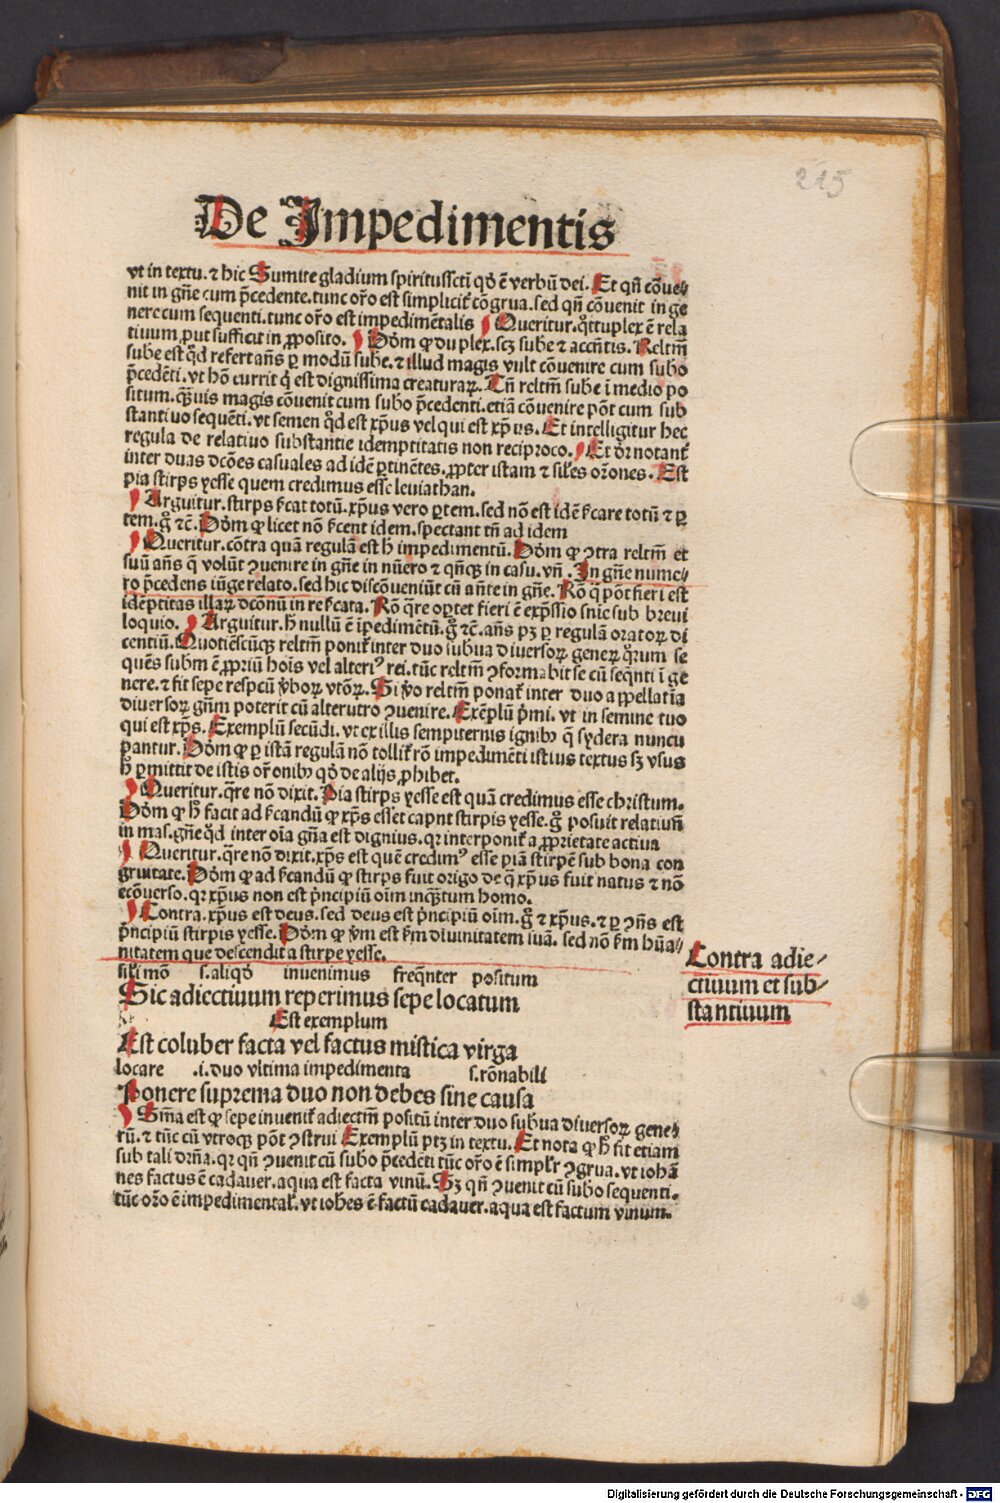 215
De Impedimentis
vt in textu. ⁊ hic Sumite gladium spiritussct̄i qd̓ ē verbū dei. Et qn̄ cōue⸗
nit in gn̄e cum p̄cedente. tunc or̄o est simplicit̓ cōgrua. sed qn̄ cōuenit in ge
nere cum sequenti. tunc or̄o est impedimētalis Queritur. qͦttuplex ē rela
tiuum ꝓut sufficit in ꝓposito. Dd̓m ꝙ duplex. scꝫ sube ⁊ accn̄tis. Reltm̄
sube est qd̓ refert an̄s ꝑ modū sube. ⁊ illud magis vult cōuenire cum subo
p̄cedēti. vt hō currit q̓ est dignissima creaturaꝝ. Tn̄ reltm̄ sube ī medio po
situm. qꝫuis magis cōuenit cum subo p̄cedenti. etiā cōuenire pōt cum sub
stantiuo sequēti. vt semen qd̓ est xp̄us vel qui est xp̄us. Et intelligitur hec
regula de relatiuo substantie idemptitatis non reciproco. Et dr̄ notant̓
inter duas dcōes casuales ad idē ꝑtinētes. ꝓpter istam ⁊ sil̓es or̄ones. Est
pia stirps yesse quem credimus esse leuiathan.
Arguitur. stirps ſc̓at totū. xp̄us vero ꝑtem. sed nō est idē ſc̓are totū ⁊ ꝑ
tem. gͦ ⁊c̄. Dd̓m ꝙ licet nō ſc̓ent idem. spectant tn̄ ad idem
Queritur. cōtra quā regulā est h̓ impedimentū. Dd̓m ꝙ ꝯtra reltm̄ et
suū an̄s q̄ volūt ꝯuenire in gn̄e in nūero ⁊ qn̄qꝫ in casu. vn̄. In gn̄e nume⸗
ro p̄cedens iūge relato. sed hic discōueniūt cū an̄te in gn̄e. Rō q̓ pōt fieri est
idēptitas illaꝝ dcōnū in ſc̓ata. Rō qr̄e oꝑtet fieri ē exp̄ssio snīe sub breui
loquio. Arguitur. h̓ nullū ē īpedimētū. gͦ ⁊c̄. an̄s pꝫ ꝑ regulā oratoꝝ di
centiū. Quotiēscūqꝫ reltm̄ ponit̓ inter duo subua diuersoꝝ geneꝝ qͦrum se
quēs subm ē ꝓpriū hoīs vel alteriꝰ rei. tūc reltm̄ ꝯformabit se cū seqn̄ti ī ge
nere. ⁊ fit sepe respcū v̓boꝝ vtōꝝ. Si v̓o reltm̄ ponat̓ inter duo appellatīa
diuersoꝝ gn̄m poterit cū alterutro ꝯuenire. Exēplū p̓mi. vt in semine tuo
qui est xp̄s. Exemplū secūdi. vt ex illis sempiternis ignibꝫ q̄ sydera nuncu
pantur. Dd̓m ꝙ ꝑ istā regulā nō tollit̓ rō impedimēti istius textus sꝫ vsus
h̓ ꝑmittit de istis or̄onibꝫ qd̓ de alijs ꝓhibet.
Queritur. qr̄e nō dixit. Pia stirps yesse est quā credimus esse christum.
Dd̓m ꝙ h̓ facit ad ſc̓andū ꝙ xp̄s esset caput stirpis yesse. gͦ posuit relatiuū
in mas. gn̄e qd̓ inter oīa gn̄a est dignius. qꝛ interponit̓ a ꝓprietate actiua
Queritur. qr̄e nō dixit. xp̄s est quē credimꝰ esse piā stirpē sub bona con
gruitate. Dd̓m ꝙ ad ſc̓andū ꝙ stirps fuit origo de q̄ xp̄us fuit natus ⁊ nō
ecōuerso. qꝛ xp̄us non est p̓ncipiū oīm inqꝫtum homo.
Contra. xp̄us est deus. sed deus est p̓ncipiū oīm. gͦ ⁊ xp̄us. ⁊ ꝑ ꝯn̄s est
p̓ncipiū stirpis yesse. Dd̓m ꝙ v̓m est ſm̄ diuinitatem suā. sed nō ſm̄ hūa⸗
nitatem que descendit a stirpe yesse.
Contra adie⸗
ctiuum et sub⸗
stantiuum
sil̓i mō s. aliqd̓ inuenimus freqn̄ter positum
Sic adiectiuum reperimus sepe locatum
Est exemplum
Est coluber facta vel factus mistica virga
locare .i. duo vltima impedimenta s. rōnabili
Ponere suprema duo non debes sine causa
Sm̄a est ꝙ sepe inuenit̓ adiectm̄ positū inter duo subua diuersoꝝ gene⸗
rū. ⁊ tūc cū vtroqꝫ pōt ꝯstrui Exemplū ptꝫ in textu. Et nota ꝙ h̓ fit etiam
sub tali drn̄a. qꝛ qn̄ ꝯuenit cū subo p̄cedēti tūc or̄o ē simpl̓r ꝯgrua. vt iohā
nes factus ē cadauer. aqua est facta vinū. Sꝫ qn̄ ꝯuenit cū subo sequenti.
tūc or̄o ē impedimental̓. vt iohes ē factū cadauer. aqua est factum vinum.
Digitalisierung gefördert durch die Deutsche Forschungsgemeinschaft - DFG